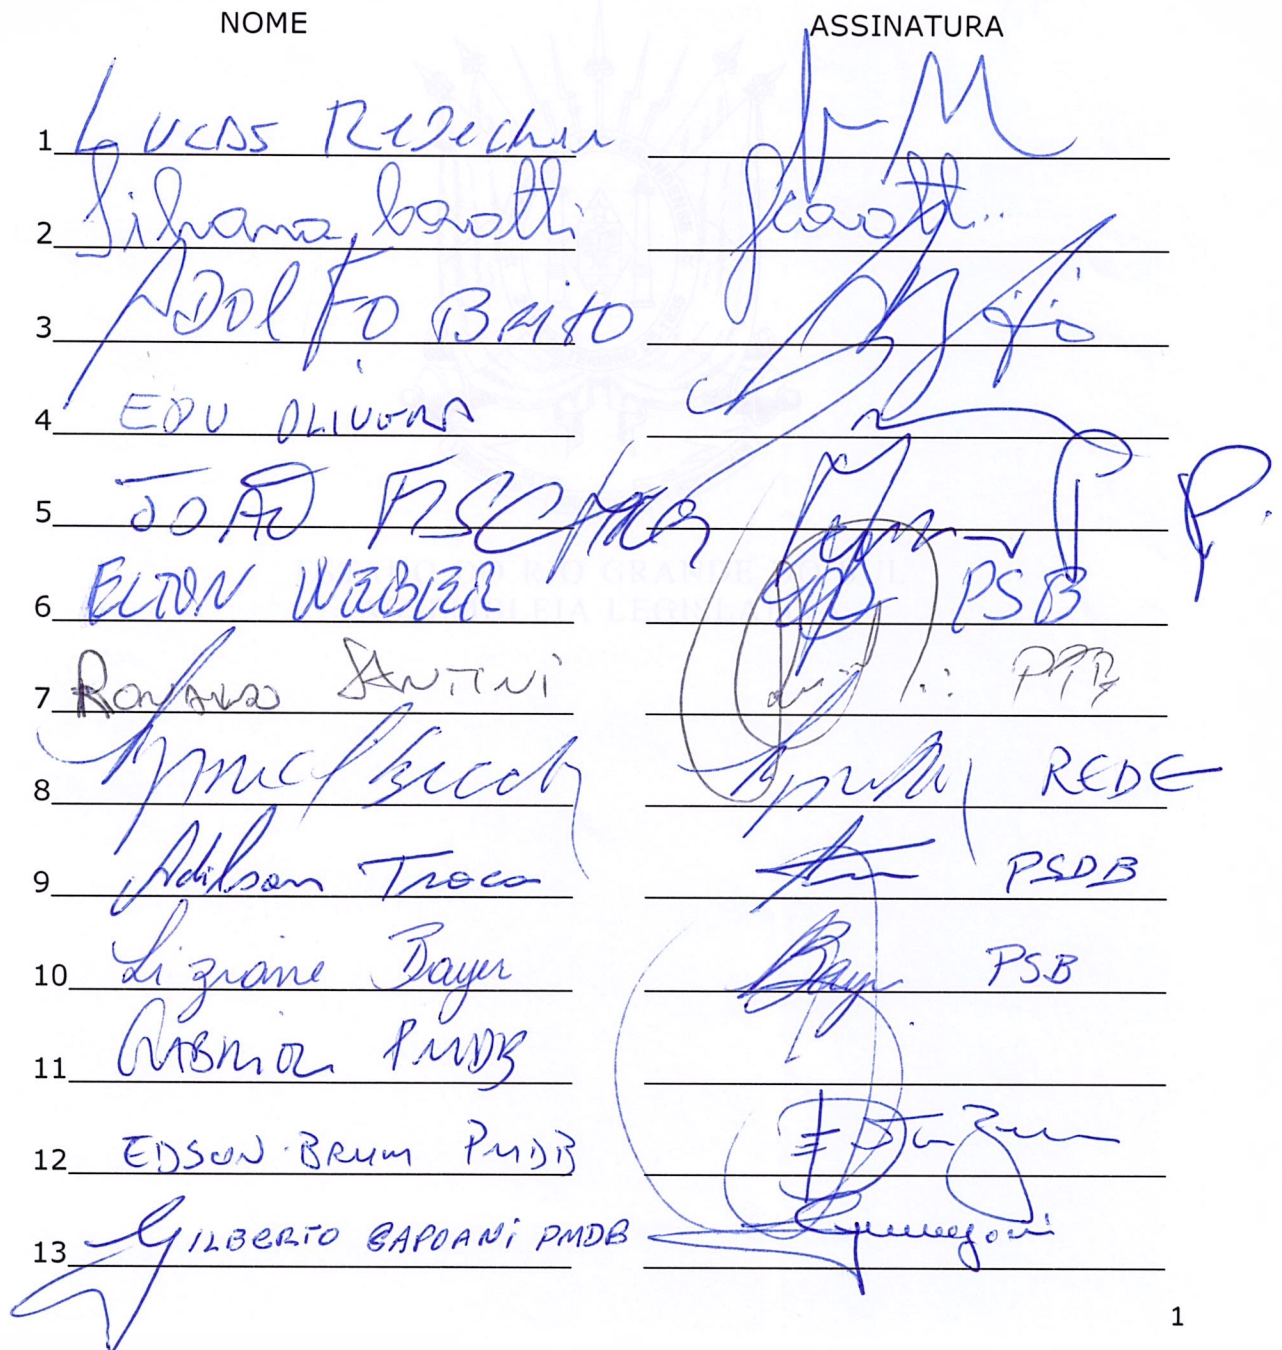 NOME ASSINATURA
1 LUCAS Redecker
2 Silvana Covatti Scovatti
3 ADOLFO BRITO
4 EDU OLIVEIRA
5 JOÃO FISCHER P.
6 ELTON WEBER PSB
7 RONALDO SANTINI PTB
8 REDE
9 Adilson Troca PSDB
10 Liziane Bayer Bayer PSB
11 GABRIEL PMDB
12 EDSON BRUM PMDB
13 GILBERTO CAPOANI PMDB
1